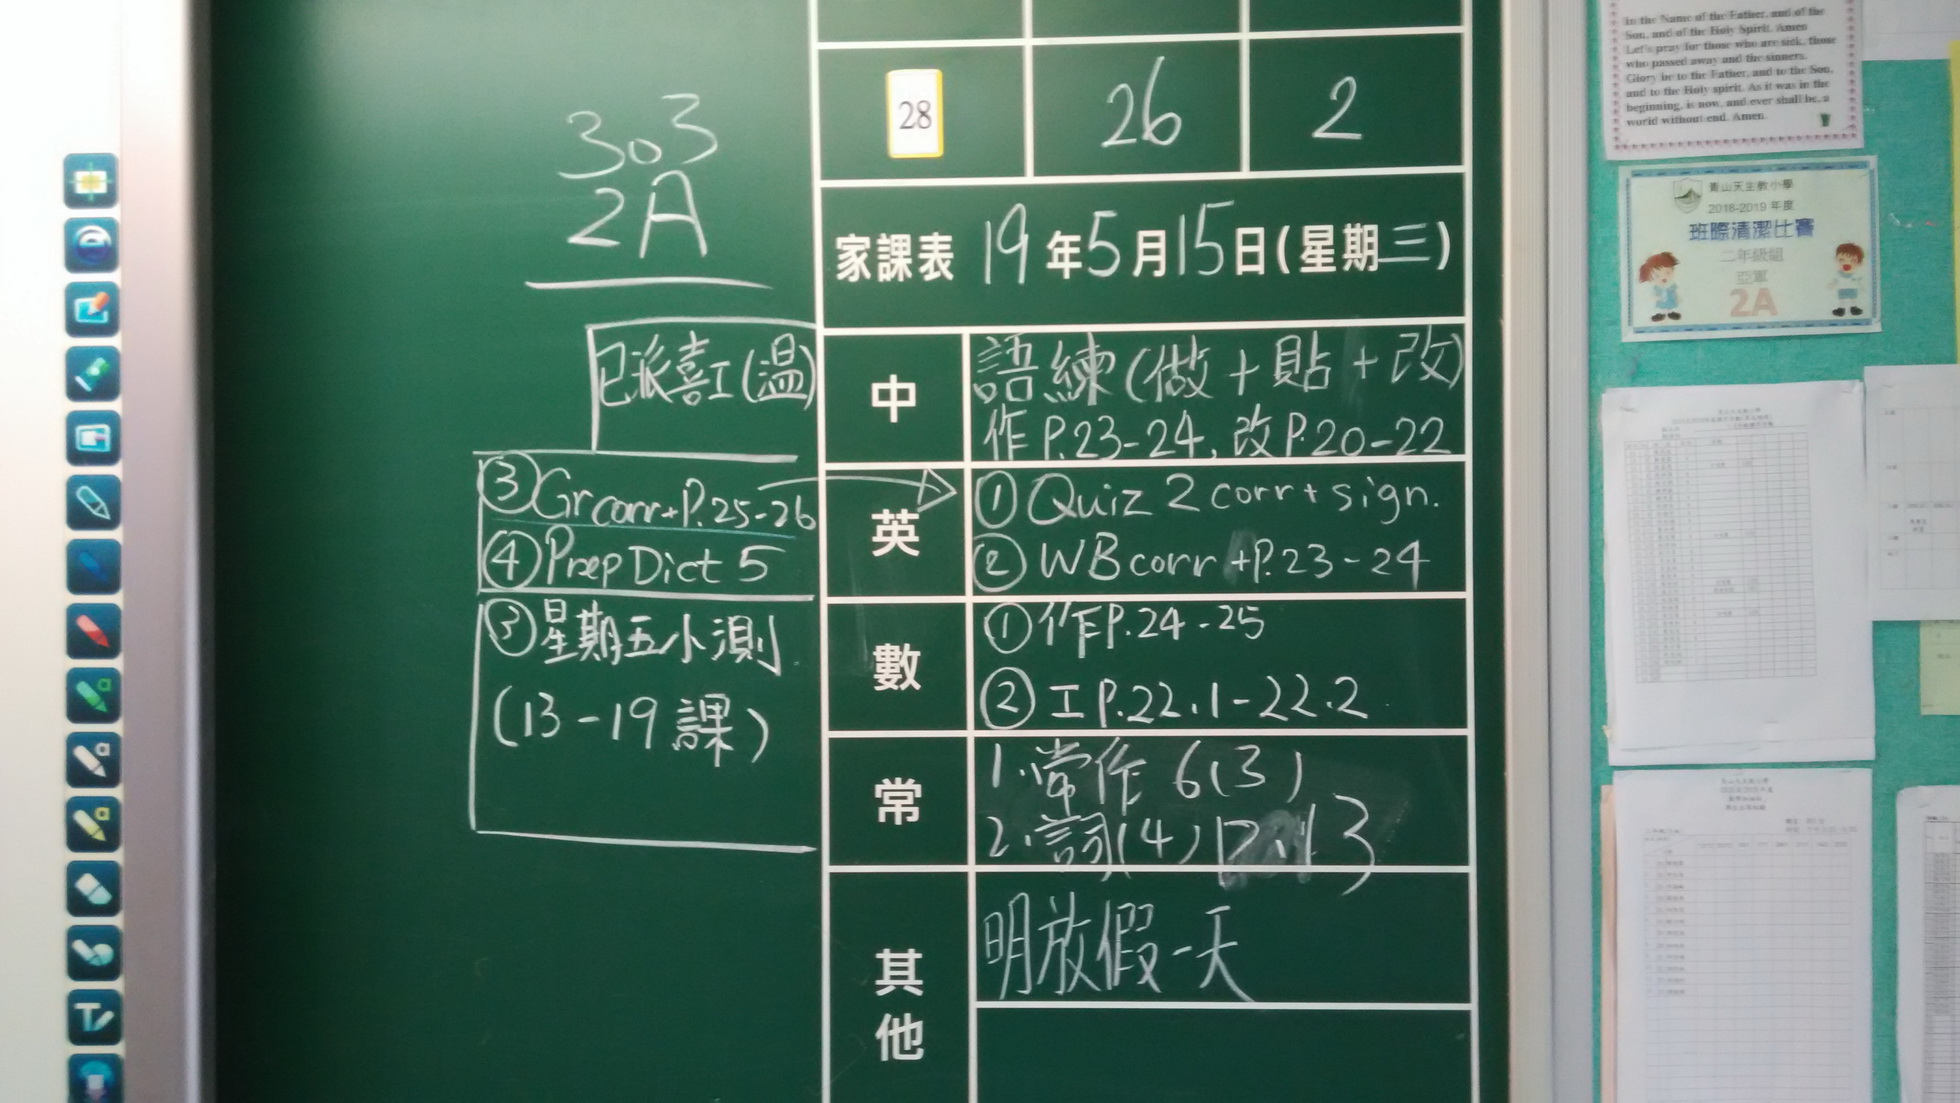 303
2A
28 26 2
家課表 19年5月15日(星期三)
已派喜工(溫)
中
語練(做+貼+改)
作P.23-24, 改P.20-22
③Gr corr+P.25-26
④Prep Dict 5
英
①Quiz 2 corr+sign.
②WB corr+P.23-24
③星期五小測
(13-19課)
數
①作P.24-25
②工P.22.1-22.2
常
1.常作 6(3)
2.詞(4) 12,13
其他
明放假一天
In the Name of the Father, and of the
Son, and of the Holy Spirit. Amen
Let's pray for those who are sick, those
who passed away and the sinners.
Glory be to the Father, and to the Son,
and to the Holy spirit. As it was in the
beginning, is now, and ever shall be, a
world without end. Amen.
青山天主教小學
2018-2019 年度
班際清潔比賽
二年級組
亞軍
2A